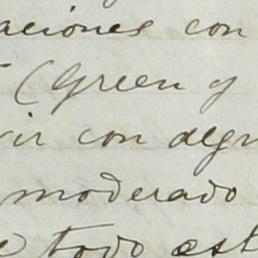 aciones con
(Green y
vir con degn
moderado
e todo est